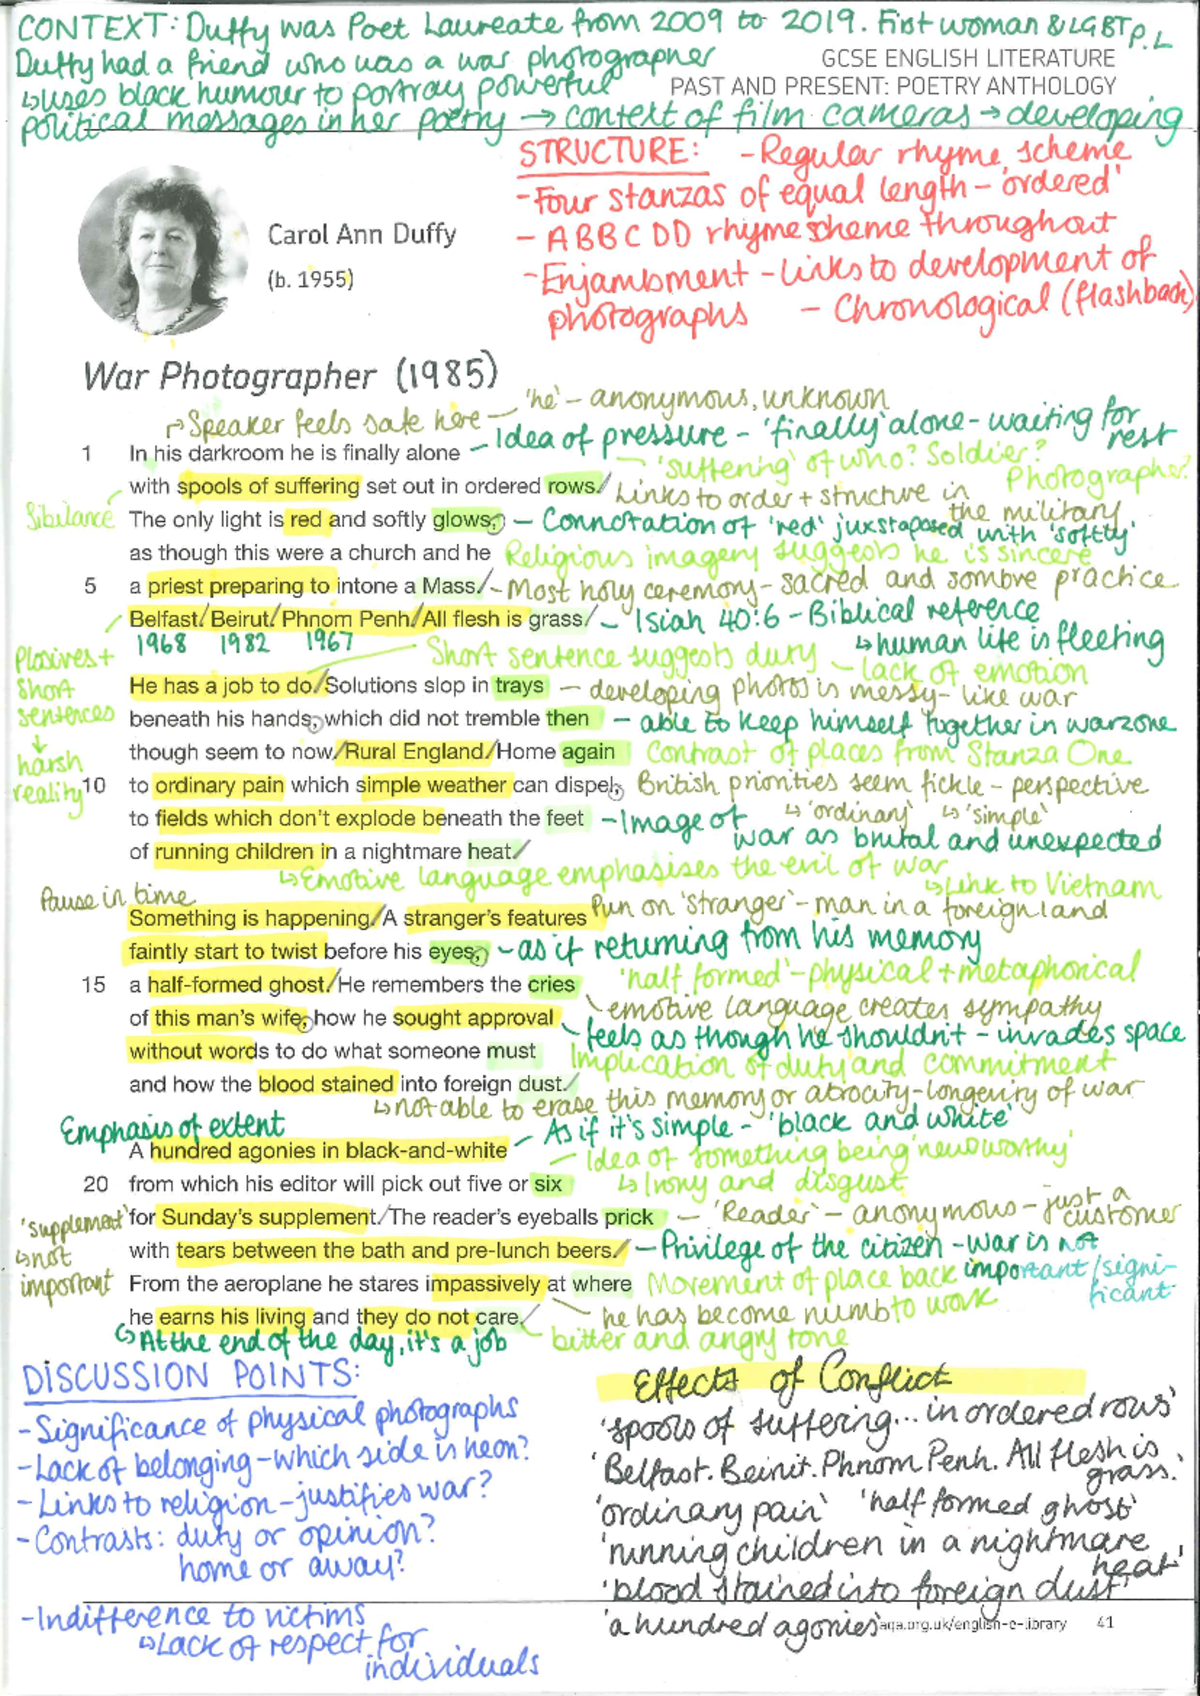 CONTEXT: Duffy was Poet Laureate from 2009 to 2019. First woman & LGBT P.L
Duffy had a friend who was a war photographer
GCSE ENGLISH LITERATURE
↳uses black humour to portray powerful
PAST AND PRESENT: POETRY ANTHOLOGY
political messages in her poetry → context of film cameras → developing
STRUCTURE: -Regular rhyme scheme
-Four stanzas of equal length - 'ordered'
- ABBCDD rhyme scheme throughout
-Enjambment - links to development of
photographs - Chronological (flashback)
Carol Ann Duffy
(b. 1955)
War Photographer (1985)
'he' - anonymous, unknown
↱Speaker feels safe here
-Idea of pressure - 'finally' alone - waiting for
rest
1 In his darkroom he is finally alone
- 'suffering' of who? Soldier?
Photographer?
with spools of suffering set out in ordered rows.
Links to order + structure in
the military
Sibilance
The only light is red and softly glows,
- Connotation of 'red' juxstaposed with 'softly'
as though this were a church and he
Religious imagery suggests he is sincere
5 a priest preparing to intone a Mass.
-Most holy ceremony - sacred and sombre practice
Belfast. Beirut. Phnom Penh. All flesh is grass.
- Isiah 40:6 - Biblical reference
↳human life is fleeting
1968 1982 1967
Plosives +
short
sentences
↓
harsh
reality
Short sentence suggests duty - lack of emotion
He has a job to do. Solutions slop in trays
- developing photos is messy - like war
beneath his hands, which did not tremble then
- able to keep himself together in warzone
though seem to now. Rural England. Home again
Contrast of places from Stanza One
10 to ordinary pain which simple weather can dispel,
British priorities seem fickle - perspective
↳'ordinary' ↳'simple'
to fields which don't explode beneath the feet
-Image of war as brutal and unexpected
of running children in a nightmare heat.
↳Emotive language emphasises the evil of war
↳Link to Vietnam
Pause in time
Something is happening. A stranger's features
Pun on 'stranger' - man in a foreign land
faintly start to twist before his eyes,
- as if returning from his memory
15 a half-formed ghost. He remembers the cries
'half formed' - physical + metaphorical
emotive language creates sympathy
of this man's wife, how he sought approval
feels as though he shouldn't - invades space
without words to do what someone must
Implication of duty and commitment
and how the blood stained into foreign dust.
↳not able to erase this memory or atrocity - longevity of war
Emphasis of extent
A hundred agonies in black-and-white
- As if it's simple - 'black and white'
- Idea of something being 'newsworthy'
20 from which his editor will pick out five or six
↳Irony and disgust
'supplement'
↳not
important
for Sunday's supplement. The reader's eyeballs prick
- 'Reader' - anonymous - just a
customer
with tears between the bath and pre-lunch beers.
- Privilege of the citizen - war is not
important/signi-
ficant
From the aeroplane he stares impassively at where
Movement of place back
he has become numb to work
he earns his living and they do not care.
bitter and angry tone
↳At the end of the day, it's a job
DISCUSSION POINTS:
-Significance of physical photographs
-Lack of belonging - which side is he on?
-Links to religion - justifies war?
-Contrasts: duty or opinion?
home or away?
-Indifference to victims
↳Lack of respect for
individuals
Effects of Conflict
'spools of suffering... in ordered rows'
'Belfast. Beirut. Phnom Penh. All flesh is
grass.'
'ordinary pain' 'half formed ghost'
'running children in a nightmare
heat'
'blood stained into foreign dust'
'a hundred agonies'
aqa.org.uk/english-e-library 41